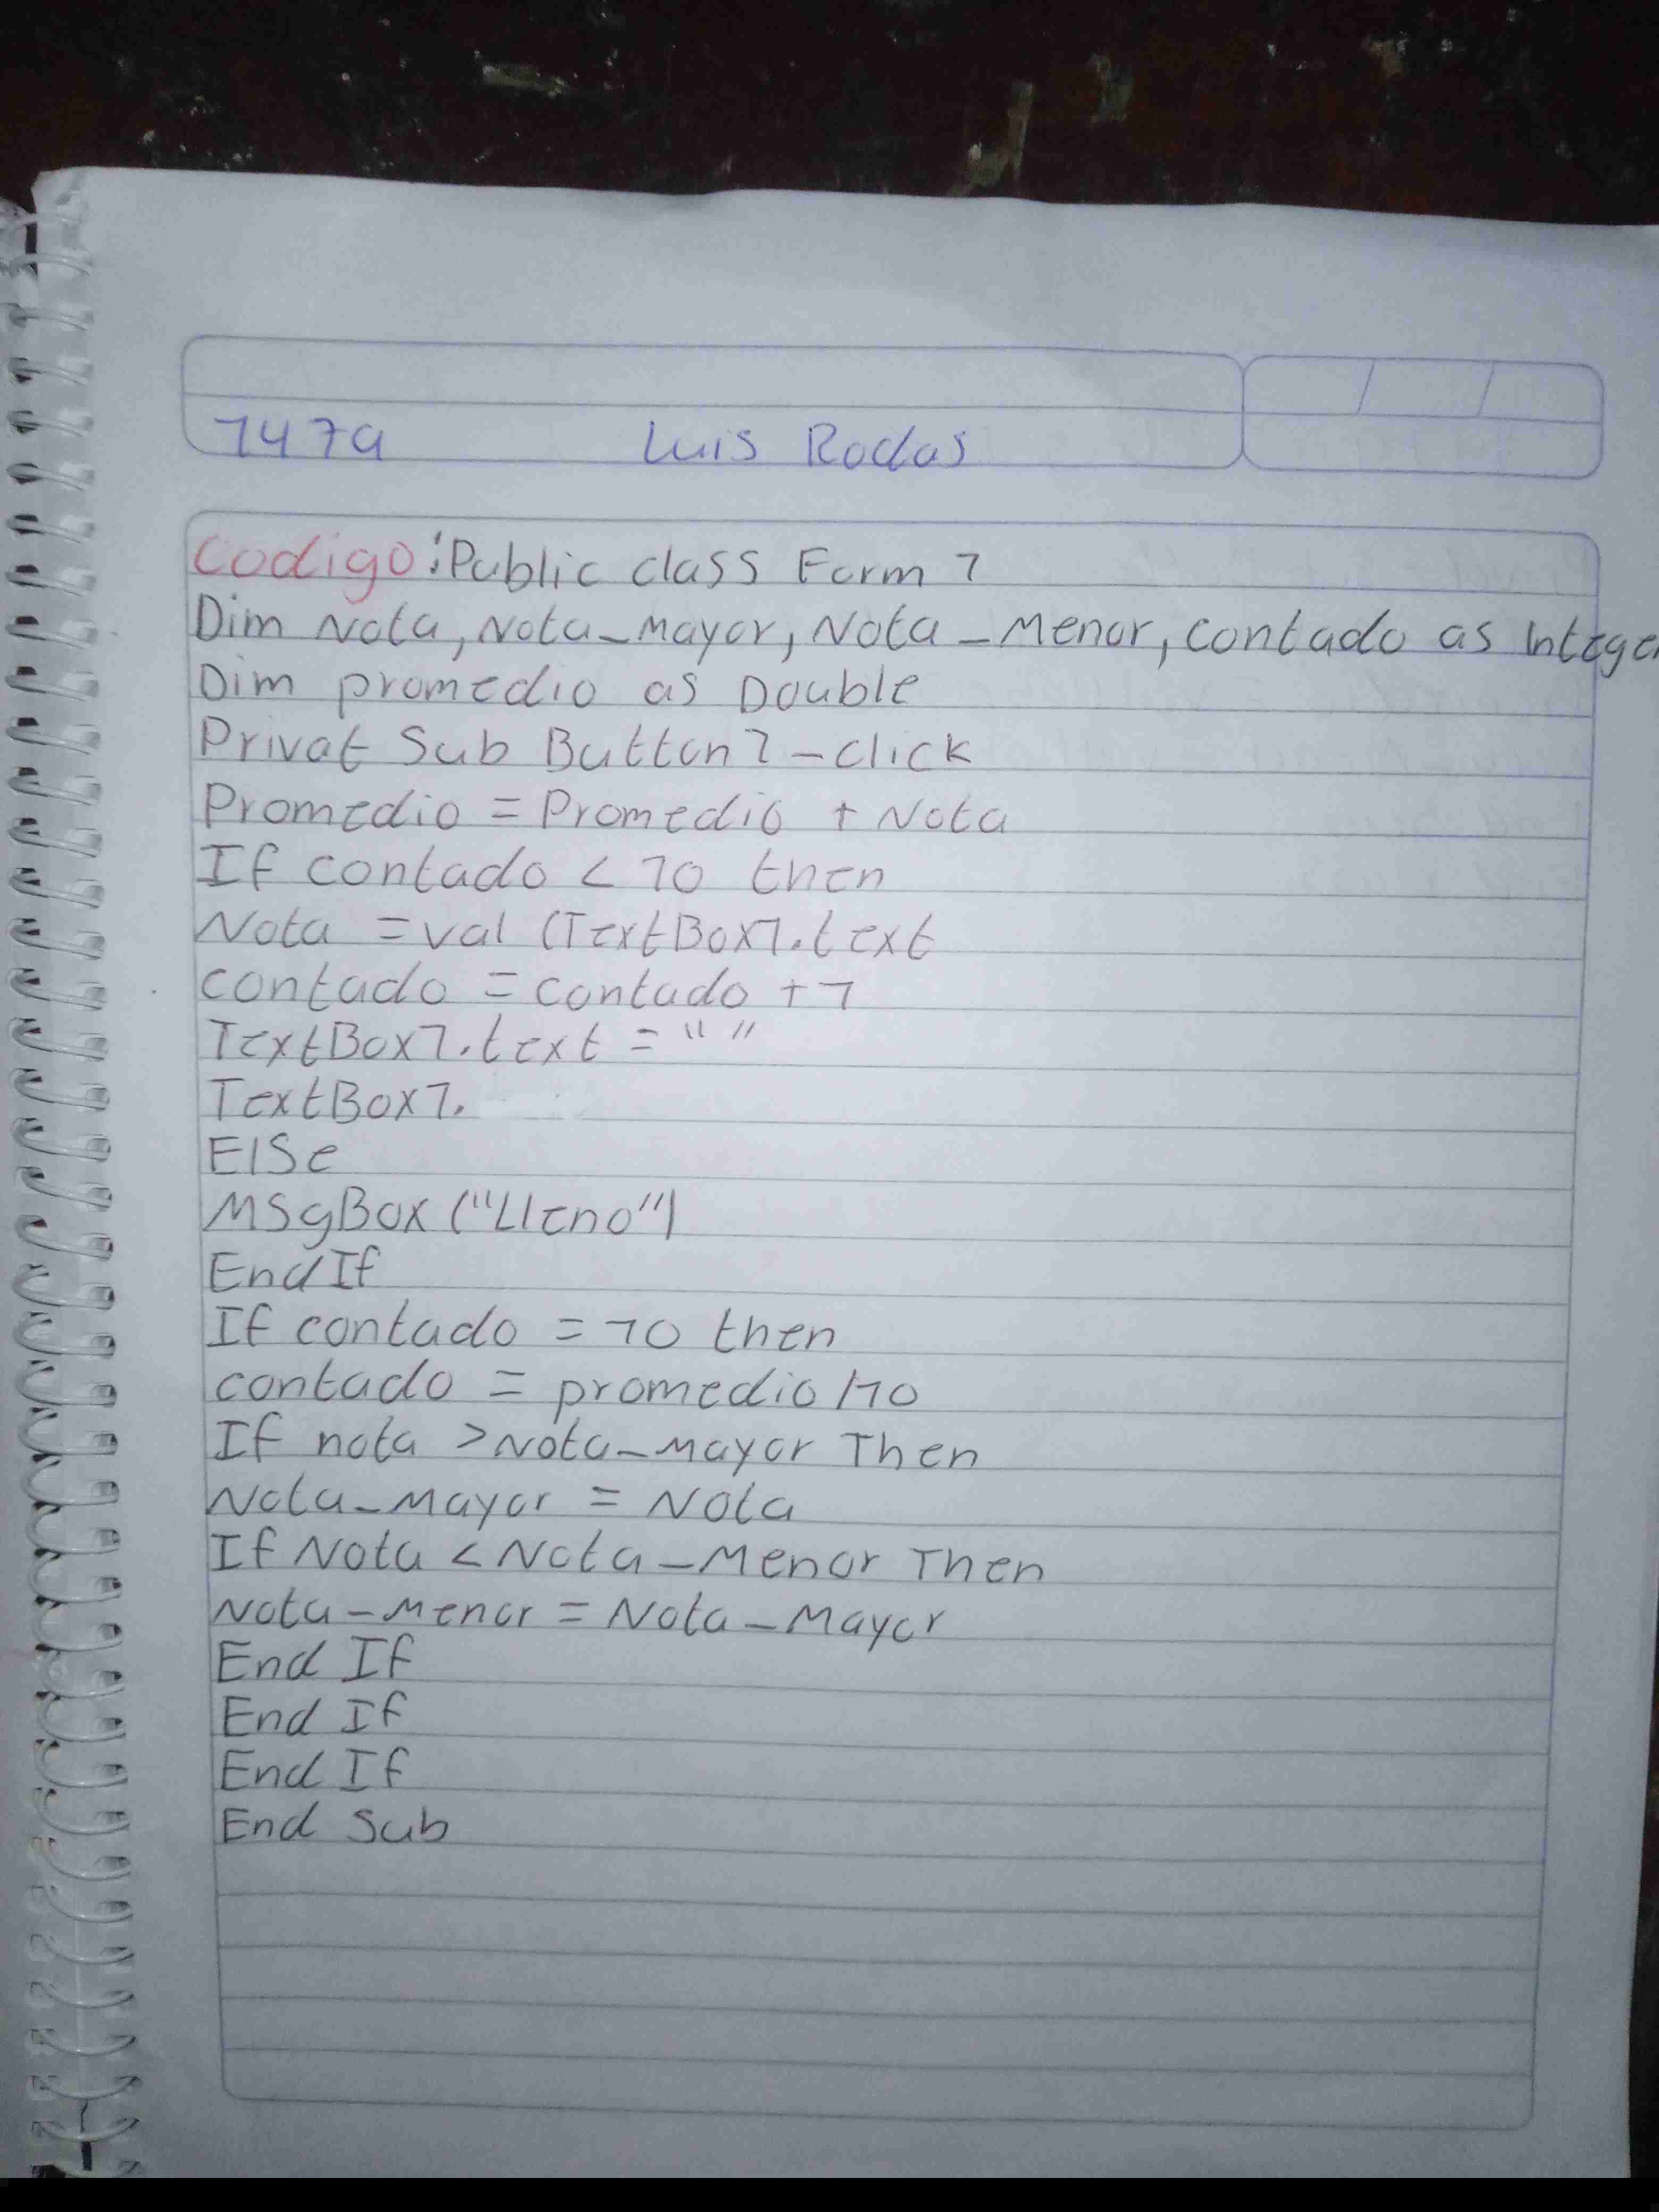 1479 Luis Rodas
Codigo: Public class Form 1
Dim Nota, Nota_Mayor, Nota_Menor, contado as Integer
Dim promedio as Double
Privat Sub Button1_click
Promedio = Promedio + Nota
If contado < 10 then
Nota = val (TextBox1.text
contado = contado + 1
TextBox1.text = " "
TextBox1.
Else
MSgBox ("Lleno")
End If
If contado = 10 then
contado = promedio / 10
If nota > Nota_Mayor Then
Nota_Mayor = Nota
If Nota < Nota_Menor Then
Nota_Menor = Nota_Mayor
End If
End If
End If
End Sub